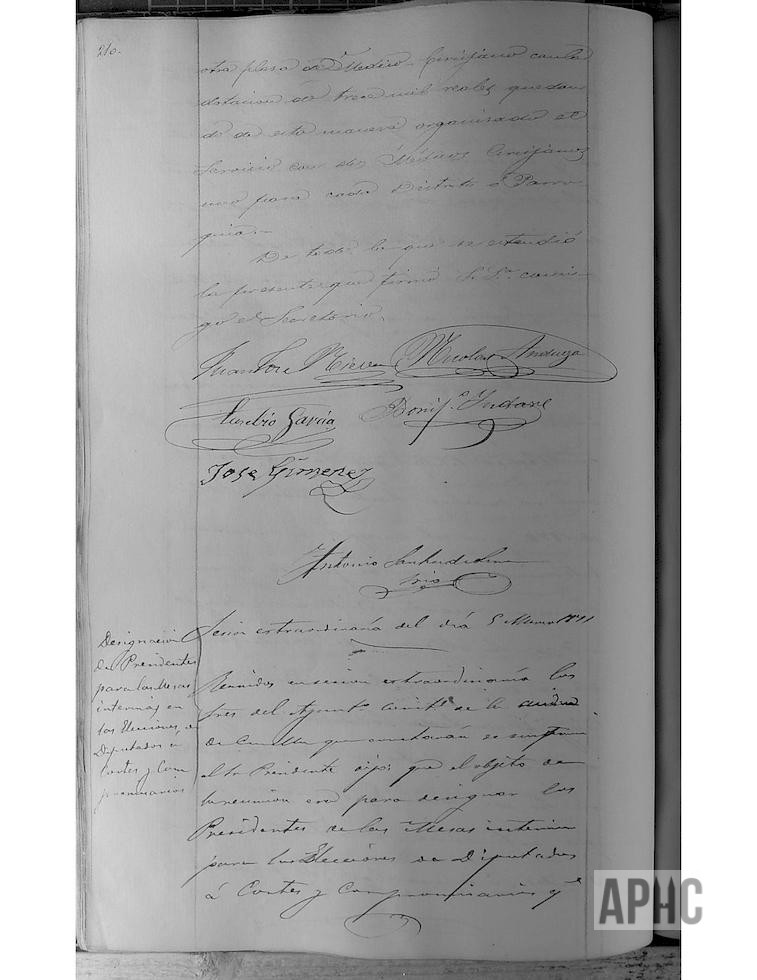 210.
otra plasa de Medico-Cirujano con la
dotacion de trece mil reales quedan-
do de esta manera organisado el
servicio con dos Medicos Cirujanos
uno para cada Distrito o Parro-
quia.-
De todo lo que se estendió
la presente que firmó S. Sª. conmi-
go el Secretario.
Juan José Nieves
Nicolas Anduyza
Eusebio Garcia
Bonifº.
Jose Gimenez
Antonio
Srio
Sesion estraordinaria del dia 5 Marzo 1871
Designacion
de Presidentes
para las Mesas
interinas en
las Elecciones de
Diputados a
Cortes y Com
promisarios
Reunidos en sesion estraordinaria los
Sres del Ayuntº. Constª. de la
de que
el Sr Presidente dijo: que el objeto de
la reunion era para designar los
Presidentes de las Mesas interinas
para las Elecciones de Diputados
á Cortes y Compromisarios qe
APHC